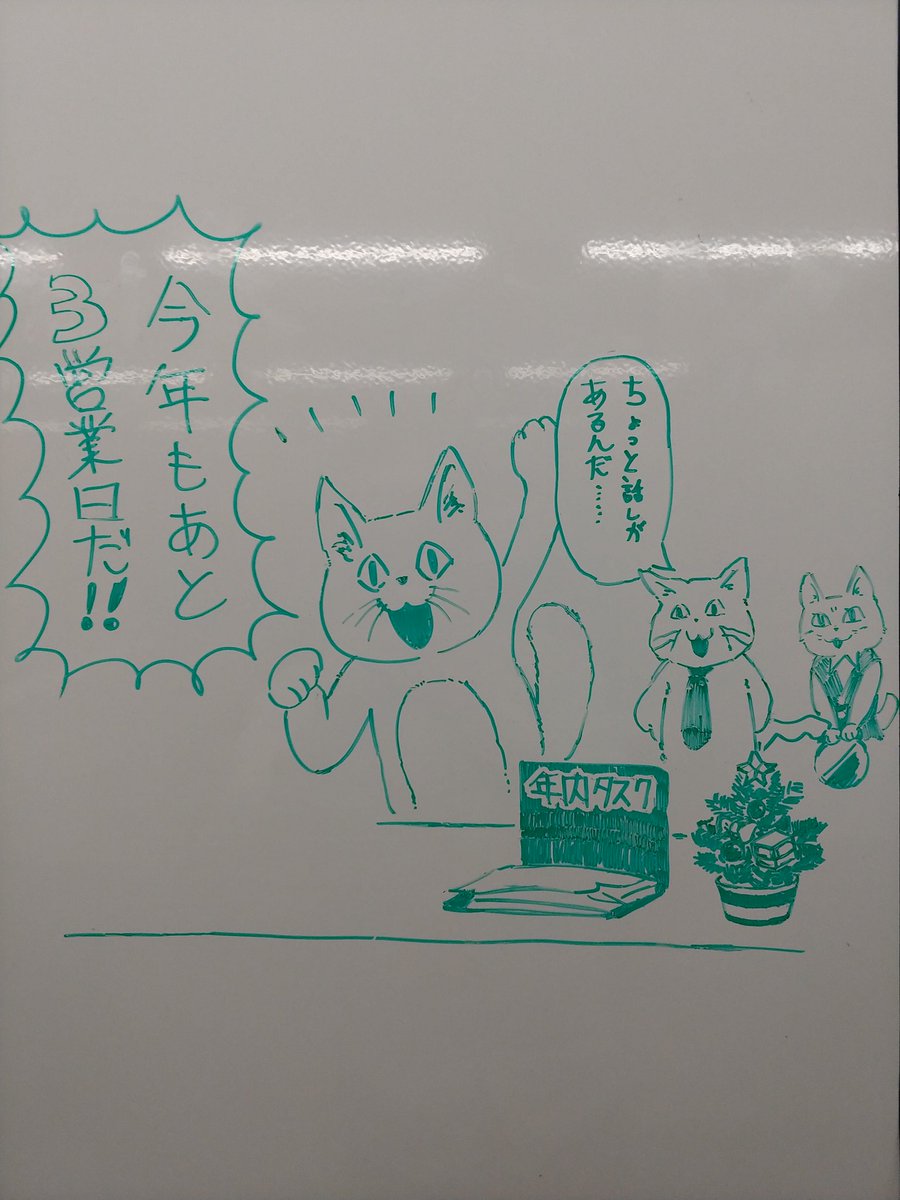 今年もあと
3営業日だ!!
ちょっと話しが
あるんだ……
年内タスク